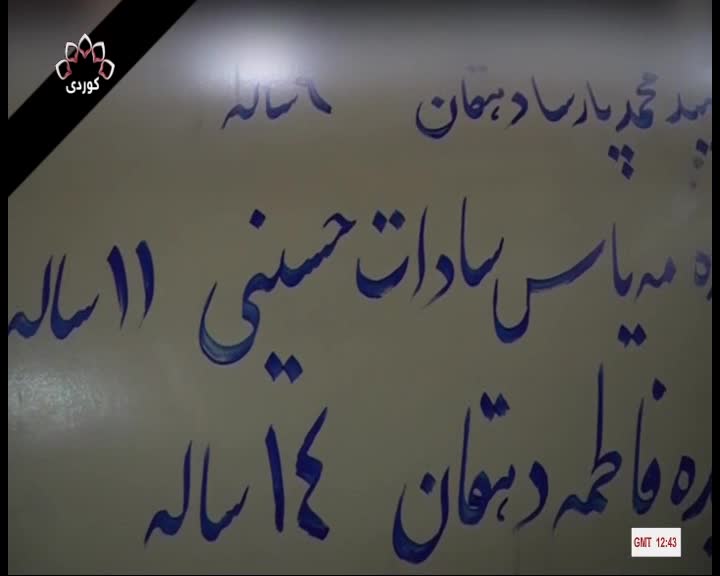 کوردی
سید محمد پارسا دهقان ۹ ساله
یاس سادات حسینی ۱۱ ساله
فاطمه دهقان ۱۴ ساله
GMT 12:43